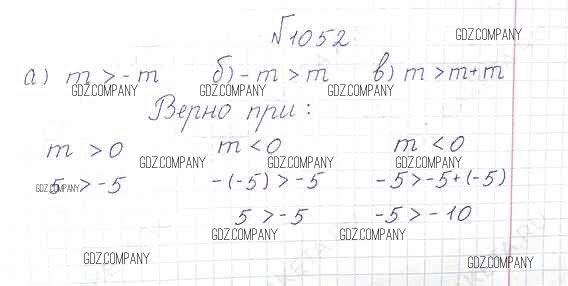 №1052
а) m > -m б) -m > m в) m > m + m
Верно при:
m > 0 m < 0 m < 0
5 > -5 -(-5) > -5 -5 > -5 + (-5)
5 > -5 -5 > -10
GDZ.COMPANY
GDZ.COMPANY GDZ.COMPANY GDZ.COMPANY
GDZ.COMPANY GDZ.COMPANY GDZ.COMPANY
GDZ.COMPANY
GDZ.COMPANY GDZ.COMPANY
GDZ.COMPANY GDZ.COMPANY